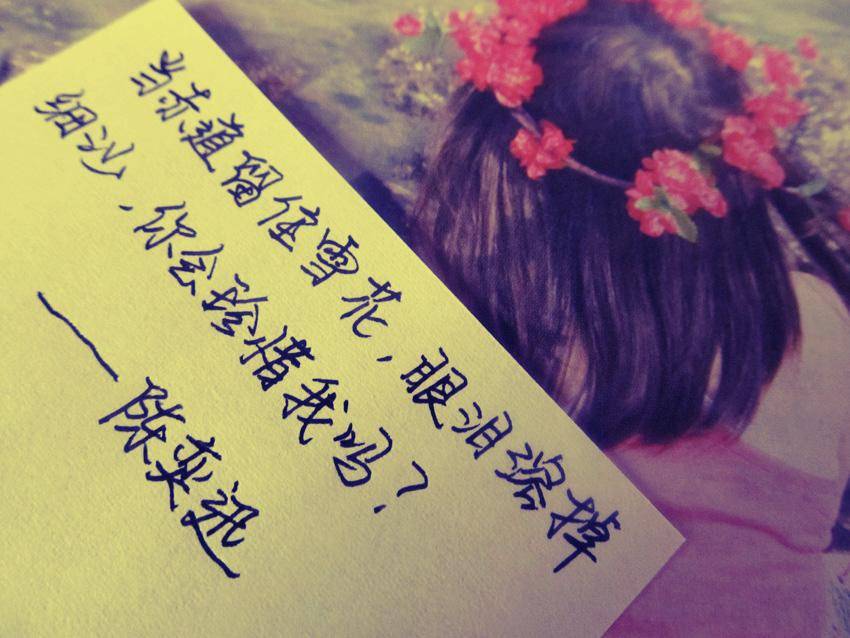 当赤道留住雪花，眼泪溶掉
细沙，你会珍惜我吗？
——陈奕迅